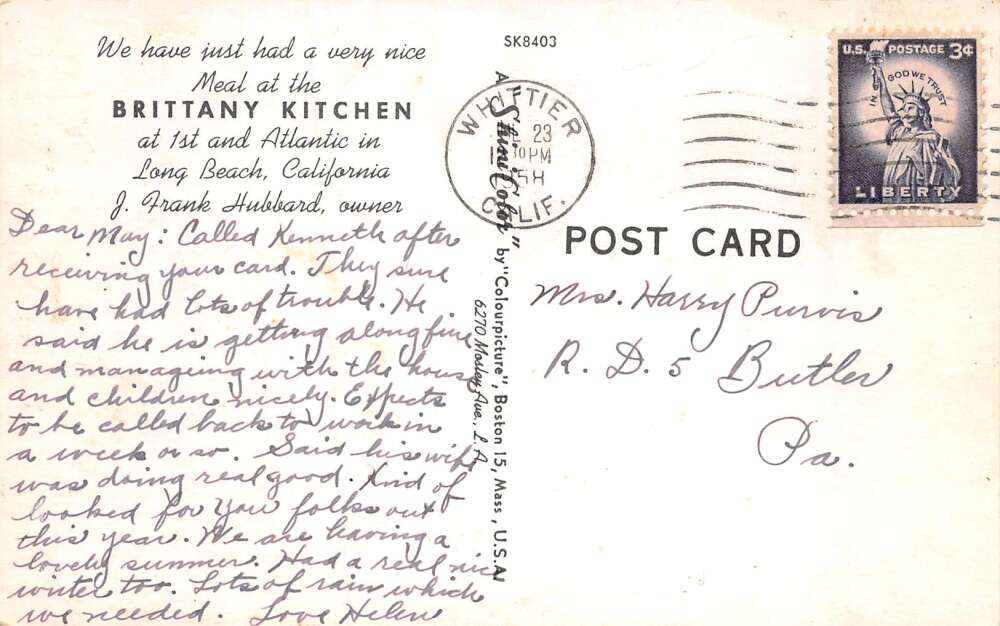 We have just had a very nice
Meal at the
BRITTANY KITCHEN
at 1st and Atlantic in
Long Beach, California
J. Frank Hubbard, owner
Dear May: Called Kenneth after
receiving your card. They sure
have had lots of trouble. He
said he is getting along fine
and manageing with the house
and children nicely. Expects
to be called back to work in
a week or so. Said his wife
was doing real good. Kind of
looked for you folks out
this year. We are having a
lovely summer. Had a real nice
winter too. Lots of rain which
we needed. Love Helen
SK8403
A "ShiniColor" by "Colourpicture", Boston 15, Mass, U.S.A.
6270 Mosley Ave., L.A.
WHITTIER
23
30 PM
58
CALIF.
U.S. POSTAGE 3¢
IN GOD WE TRUST
LIBERTY
POST CARD
Mrs. Harry Purvis
R. D. 5 Butler
Pa.